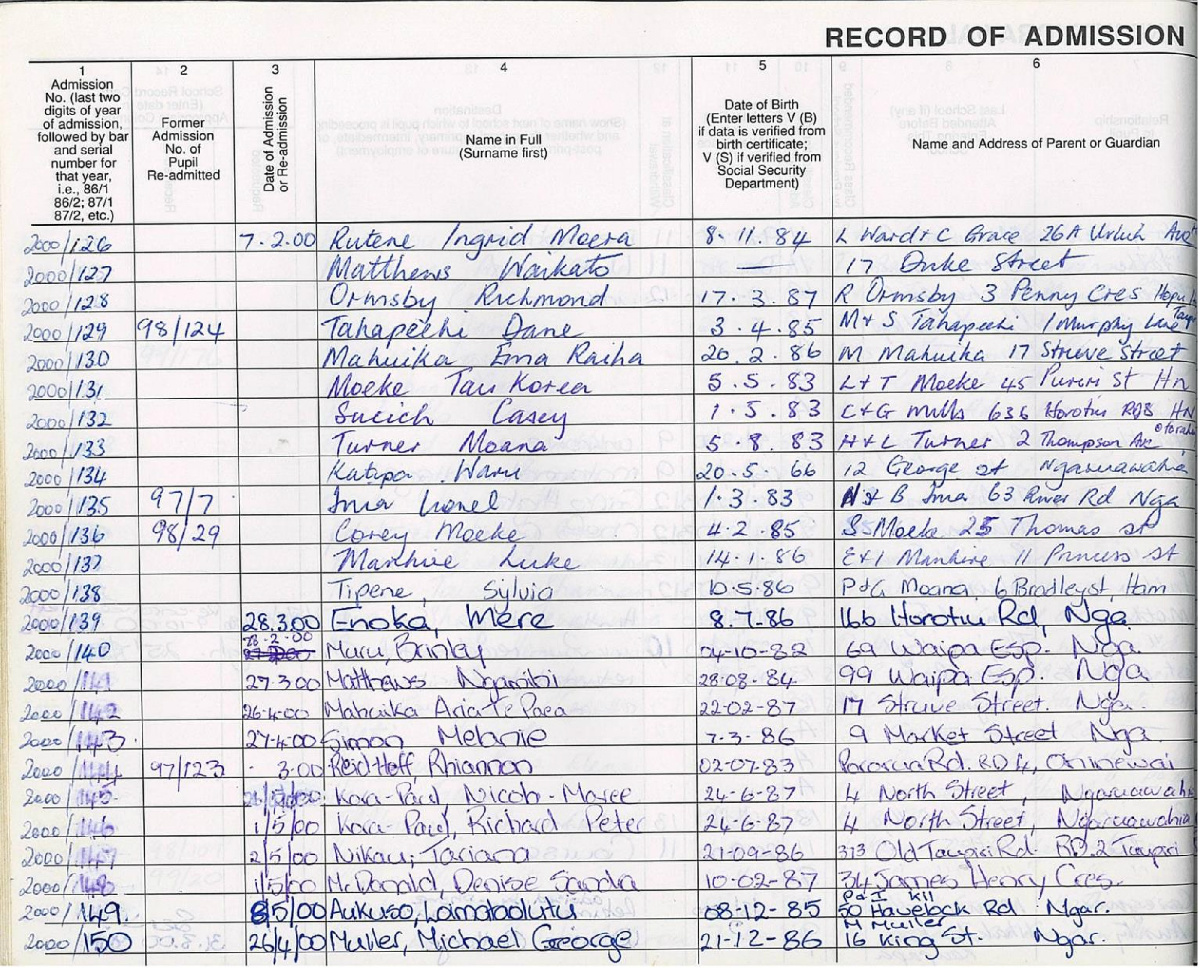 RECORD OF ADMISSION
1 2 3 4 5 6
Admission No. (last two digits of year of admission, followed by bar and serial number for that year, i.e., 86/1 86/2; 87/1 87/2, etc.)
Former Admission No. of Pupil Re-admitted
Date of Admission or Re-admission
Name in Full (Surname first)
Date of Birth (Enter letters V (B) if data is verified from birth certificate; V (S) if verified from Social Security Department)
Name and Address of Parent or Guardian
2000/126 7.2.00 Rutene Ingrid Moera 8.11.84 L Ward + C Grace 26A Urlich Ave
2000/127 Matthews Waikato — 17 Duke Street
2000/128 Ormsby Richmond 17.3.87 R Ormsby 3 Penny Cres
2000/129 98/124 Tahapeehi Dane 3.4.85 M + S Tahapeehi 1 Murphy Lane
2000/130 Mahuika Ema Raiha 20.2.86 M Mahuika 17 Struve Street
2000/131 Moeke Tau Korea 5.5.83 L + T Moeke 45 Puriri St Hn
2000/132 Sucich Casey 1.5.83 C + G Mills 636 Horotiu RD8 HN
2000/133 Turner Moana 5.8.83 H + L Turner 2 Thompson Ave
2000/134 Katupa Waru 20.5.66 12 George st Ngaruawahia
2000/135 97/7 Ima Lionel 1.3.83 & B Ima 63 River Rd Nga
2000/136 98/29 Corey Moeke 4.2.85 S Moeke 25 Thomas st
2000/137 Manhire Luke 14.1.86 E + I Manhire 11 Princess st
2000/138 Tipene, Sylvia 10.5.86 P + G Moana, 6 Bradley st, Ham
2000/139 28.3.00 Enoka, Mere 8.7.86 166 Horotiu Rd, Nga.
28.2.00
2000/140 Maru, Brinley 04-10-82 69 Waipa Esp. Nga.
2000/141 27.3.00 Matthews 28.08.84 99 Waipa Esp. Nga
2000/142 26-4-00 Mahuika Aria te Paea 22-02-87 17 Struve Street. Nga.
2000/143 27-4-00 Simon Melanie 7.3.86 9 Market Street Nga.
2000/144 97/123 - 3.00 Reid Hoff, Rhiannon 02-07-83 Rd. RD 4, Ohinewai
2000/145 Kora-Paul, Nicob-Maree 24-6-87 4 North Street, Ngaruawahia
2000/146 1/5/00 Kora-Paul, Richard Peter 24-6-87 4 North Street, Ngaruawahia
2000/147 2/5/00 Nikau, Tariana 21-09-86 313 Old Taupiri Rd. RD.2 Taupiri
2000/148 1/5/00 McDonald, Denise Sandra 10-02-87 34 James Henry Cres.
2000/149. 8/5/00 Aukuso, 08-12-85 50 Havelock Rd Ngar.
M Muller
2000/150 26/4/00 Muller, Michael George 21-12-86 16 King St. Ngar.